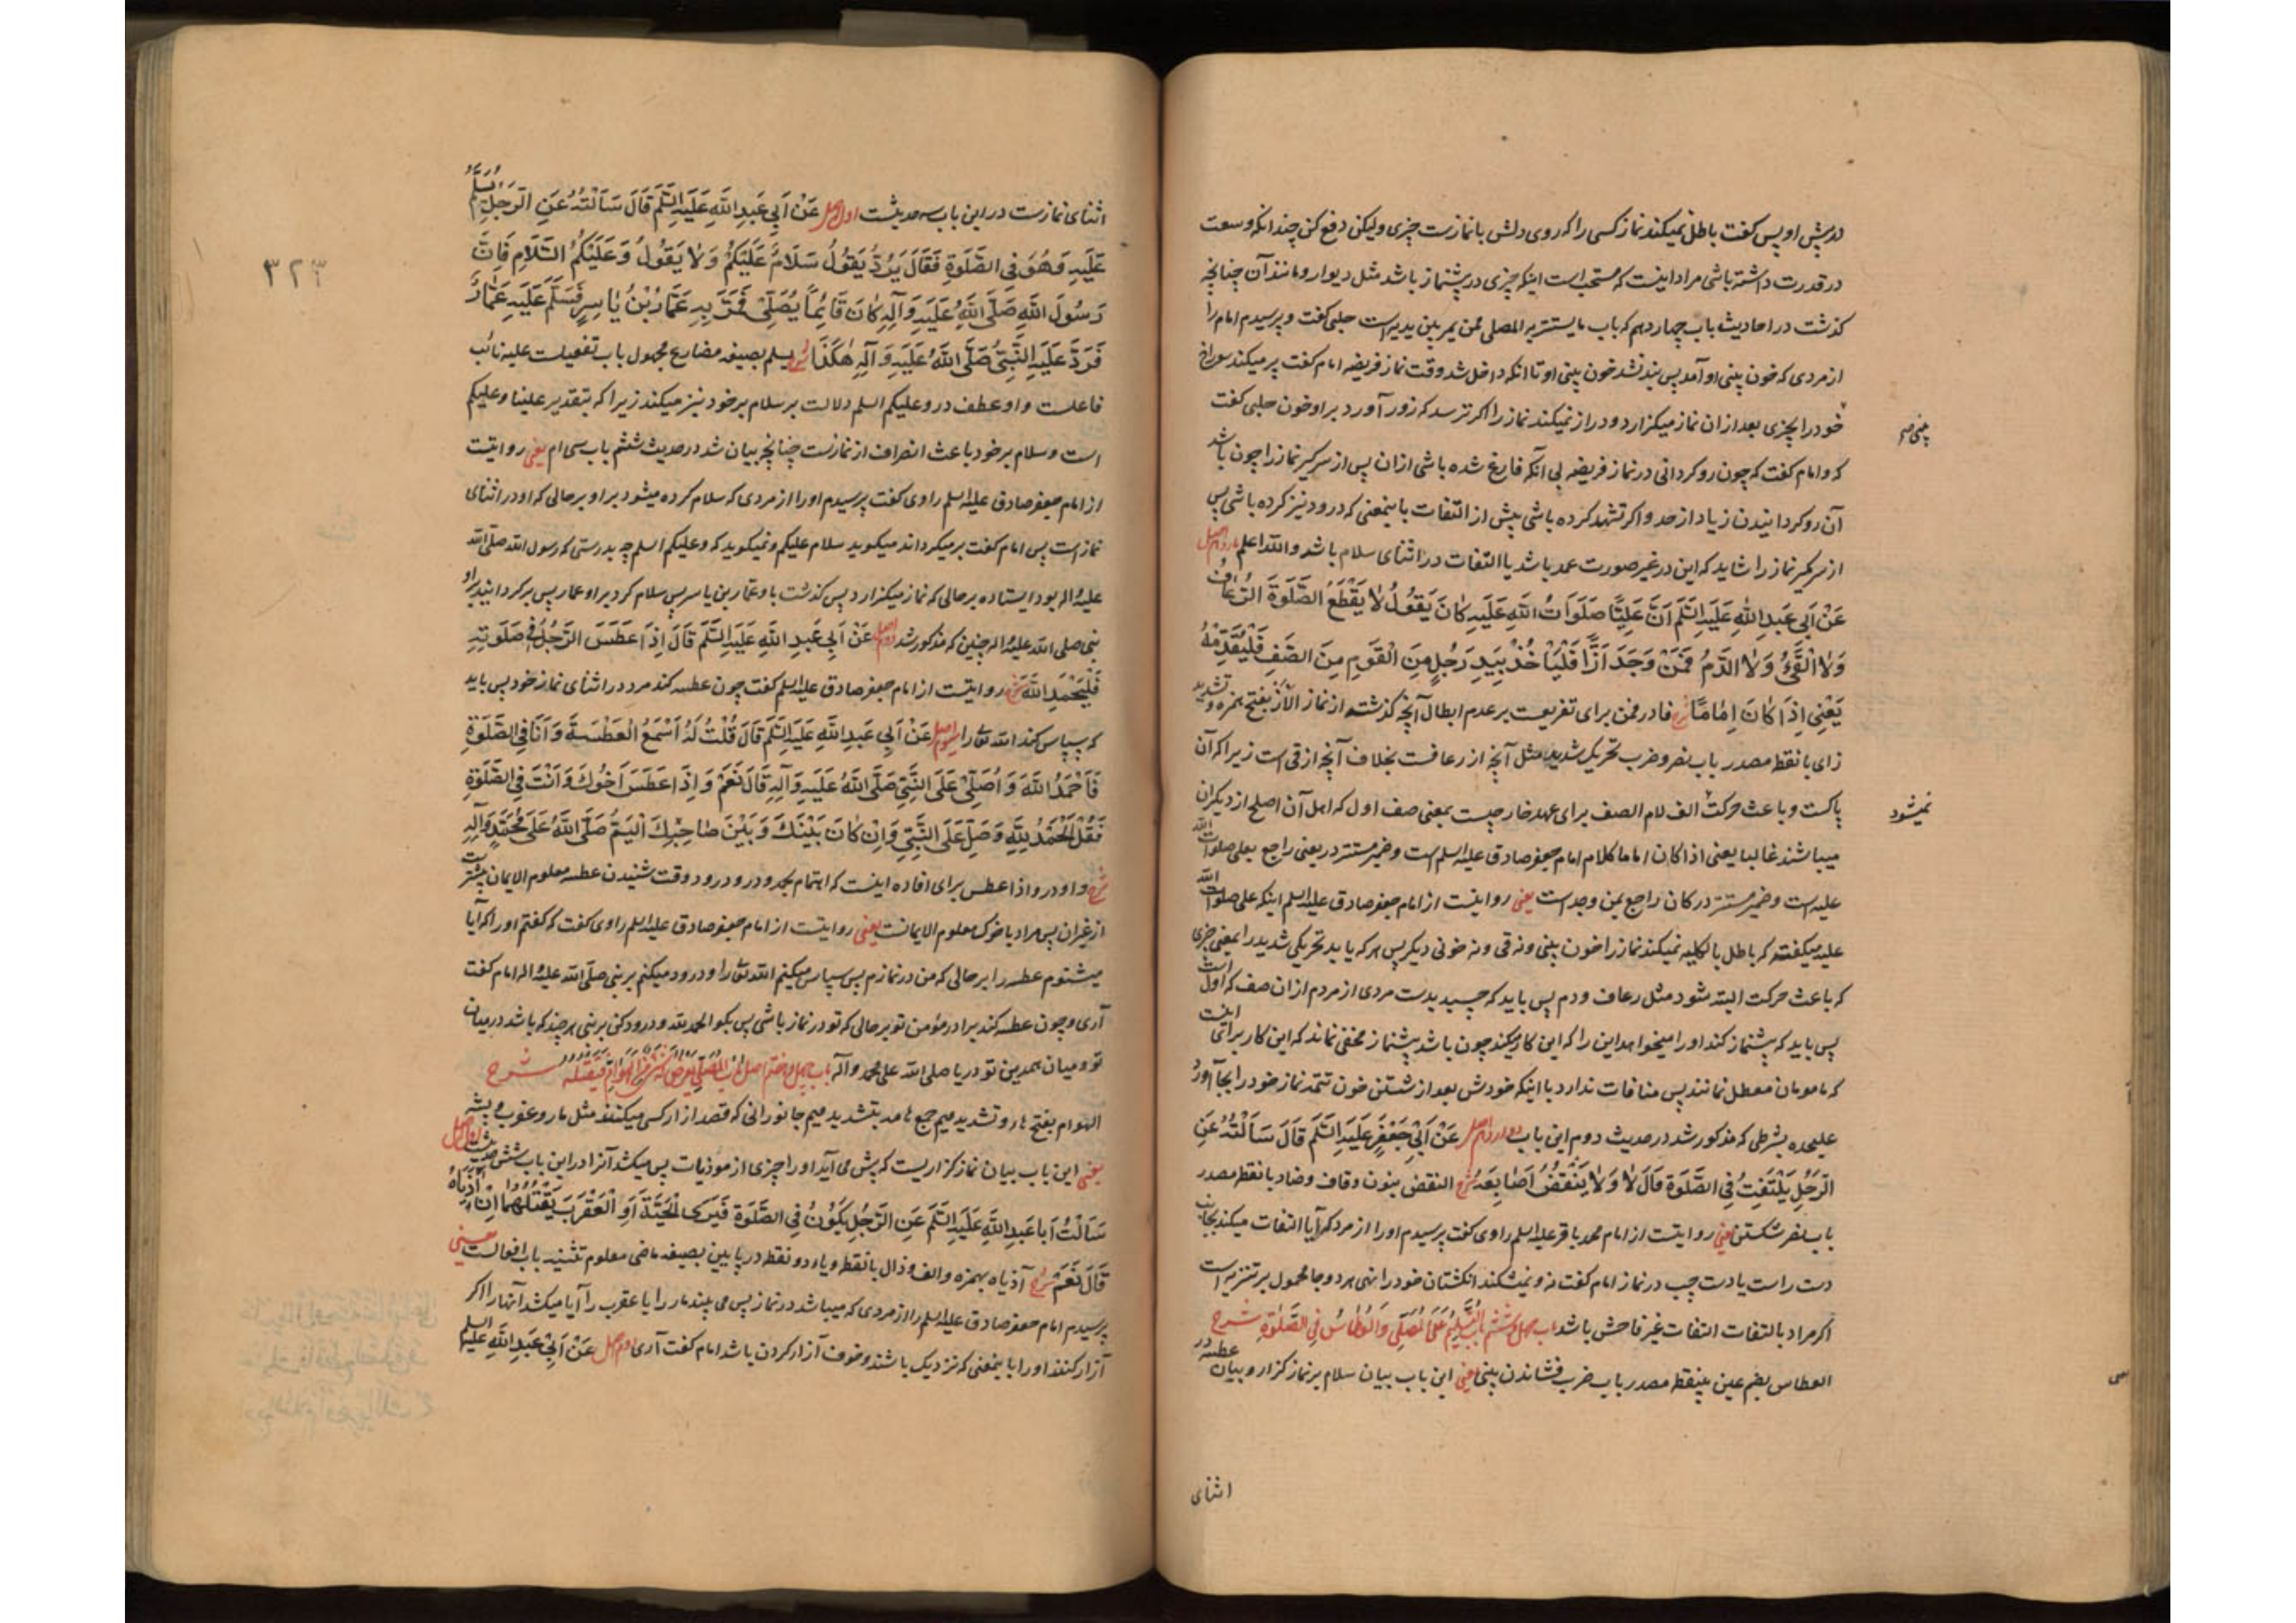 در پیش او پس کفت باطل نمیکند نماز کسی را که روی دلش با نمازست چیزی ولیکن دفع کن چندانکه وسعت
در قدرت داشته باشی مراد اینست که مستحب است اینکه چیزی در پیشنماز باشد مثل دیوار و مانند آن چنانچه
کذشت در احادیث باب چهاردهم که باب ما یستتر به المصلی ممن یمر بین یدیه است حلبی کفت و پرسیدم امام را
از مردی که خون بینی او آمد پس بند نشد خون بینی او تا انکه داخل شد وقت نماز فریضه امام کفت پر میکند سوراخ
خود را بچیزی بعد از ان نماز میکزارد و دراز نمیکند نماز را اکر ترسد که زور آورد بر او خون حلبی کفت
که و امام کفت که چون رو کردانی در نماز فریضه بی آنکه فارغ شده باشی ازان پس از سر کیر نماز را چون باشد
آن رو کردانیدن زیاد از حد و اکر تشهد کرده باشی پیش از التفات باینمعنی که درود نیز کرده باشی پس
از سر مکیر نماز را شاید که این در غیر صورت عمد باشد یا التفات در اثنای سلام باشد والله اعلم یازدهم اصل
عَنْ اَبِی عَبدِ اللهِ عَلَیهِ السَّلَم اَنَّ عَلِیًّا صَلَوَاتُ اللهِ عَلَیهِ کَانَ یَقُولُ لَا یَقْطَعُ الصَّلَوةَ الرُّعَافُ
وَلَا الْقَیْءُ وَلَا الدَّمُ فَمَنْ وَجَدَ اَزًّا فَلْیَأخُذْ بِیَدِ رَجُلٍ مِنَ الْقَومِ مِنَ الصَّفِ فَلْیُقَدِّمْهُ
یَعْنِی اِذَا کَانَ اِمَامًا شرح فا در فمن برای تفریعت بر عدم ابطال آنچه کذشت از نماز الأز بفتح همزه و تشدید
زای با نقطه مصدر باب نصر و ضرب تحریک شدید مثل آنچه از رعافت بخلاف آنچه از قی است زیرا که آن
پاکست و باعث حرکت نمیشود الف لام الصف برای عهد خارجیست بمعنی صف اول که اهل آن اصلح از دیکران
میباشند غالبا یعنی اذا کان اماما کلام امام جعفر صادق علیه السلم است و ضمیر مستتر در یعنی راجع بعلی صلوات الله
علیه است و ضمیر مستتر در کان راجع بمن وجد است یعنی روایتست از امام جعفر صادق علیه السلم اینکه علی صلوات الله
علیه میکفته که باطل بالکلیه نمیکند نماز را خون بینی و نه قی و نه خونی دیکر پس هر که یابد تحریکی شدید را بمعنی چیزی
که باعث حرکت البته شود مثل رعاف و دم پس باید که چسبد بدست مردی از مردم ازان صف که اول است
پس باید که پیشنماز کند او را میخواهد این را که این کار میکند چون باشد پیشنماز مخفی نماند که این کار برای اینست
که مامومان معطل نمانند پس منافات ندارد با اینکه خودش بعد از شستن خون تتمه نماز خود را بجا آورد
علیحده بشرطی که مذکور شد در حدیث دوم این باب دوازدهم اصل عَنْ اَبِی جَعْفَرٍ عَلَیهِ السَّلَم قَالَ سَأَلْتُهُ عَنِ
الرَّجُلِ یَلْتَفِتُ فِی الصَّلَوةِ قَالَ لَا وَلَا یَنْقُضُ اَصَابِعَهُ شرح النقض بنون و قاف و ضاد با نقطه مصدر
باب نصر شکستن یعنی روایتست از امام محمد باقر علیه السلم راوی کفت پرسیدم او را از مرد که آیا التفات میکند بجانب
دست راست یا دست چپ در نماز امام کفت نه و نمیشکند انکشتان خود را نهی هر دو جا محمول بر تنزیه است
اکر مراد بالتفات التفات غیر فاحش باشد باب چهل و ششم بَابُ التَّسْلِیمِ عَلَی الْمُصَلِّی وَالْعُطَاسُ فِی الصَّلَوةِ شرح
العطاس بضم عین بینقطه مصدر باب ضرب فشاندن بینی یعنی این باب بیان سلام بر نماز کزار و بیان عطسه در
اثنای
۳۲۳
اثنای نمازست در این باب سه حدیثست اول اصل عَنْ اَبِی عَبدِ اللهِ عَلَیهِ السَّلَم قَالَ سَأَلْتُهُ عَنِ الرَّجُلِ یُسَلَّمُ
عَلَیهِ وَهُوَ فِی الصَّلَوةِ فَقَالَ یَرُدُّ یَقُولُ سَلَامٌ عَلَیکُمْ وَلَا یَقُولُ وَعَلَیْکُمُ السَّلَامِ فَاِنَّ
رَسُولَ اللهِ صَلَّی اللهُ عَلَیهِ وَآلِهِ کَانَ قَائِمًا یُصَلِّی فَمَرَّ بِهِ عَمَّارُ بْنُ یَاسِرٍ فَسَلَّمَ عَلَیهِ عَمَّارٌ
فَرَدَّ عَلَیهِ النَّبِیُّ صَلَّی اللهُ عَلَیهِ وَآلِهِ هٰکَذَا شرح یسلم بصیغه مضارع مجهول باب تفعیلست علیه نائب
فاعلست واو عطف در و علیکم السلم دلالت بر سلام بر خود نیز میکند زیرا که بتقدیر علینا و علیکم
است و سلام بر خود باعث انصراف از نمازست چنانچه بیان شد در حدیث ششم باب سی ام یعنی روایتست
از امام جعفر صادق علیه السلم راوی کفت پرسیدم او را از مردی که سلام کرده میشود بر او بر حالی که او در اثنای
نماز است پس امام کفت برمیکرداند میکوید سلام علیکم و نمیکوید که و علیکم السلم چه بدرستی که رسول الله صلی الله
علیه و اله بود ایستاده بر حالی که نماز میکزارد پس کذشت باو عمار بن یاسر پس سلام کرد بر او عمار پس برکردانید بر او
نبی صلی الله علیه و اله چنین که مذکور شد دوم اصل عَنْ اَبِی عَبدِ اللهِ عَلَیهِ السَّلَم قَالَ اِذَا عَطَسَ الرَّجُلُ فِی صَلَوتِهِ
فَلْیَحْمَدِ اللهَ شرح روایتست از امام جعفر صادق علیه السلم کفت چون عطسه کند مرد در اثنای نماز خود پس باید
که سپاس کند الله تعالی را سوم اصل عَنْ اَبِی عَبدِ اللهِ عَلَیهِ السَّلَم قَالَ قُلْتُ لَهُ اَسْمَعُ الْعَطْسَةَ وَاَنَا فِی الصَّلَوةِ
فَاَحْمَدُ اللهَ وَاُصَلِّی عَلَی النَّبِیِّ صَلَّی اللهُ عَلَیهِ وَآلِهِ قَالَ نَعَمْ وَاِذَا عَطَسَ اَخُوکَ وَاَنْتَ فِی الصَّلَوةِ
فَقُلْ الْحَمْدُ لِلّهِ وَصَلِّ عَلَی النَّبِیِّ وَاِنْ کَانَ بَیْنَکَ وَبَیْنَ صَاحِبِکَ الْیَمُّ صَلَّی اللهُ عَلَی مُحَمَّدٍ وَآلِهِ
شرح واو در و اذا عطس برای افاده اینست که اهتمام بحمد و درود در وقت شنیدن عطسه معلوم الایمان بیشتر است
از غیران پس مراد باخوک معلوم الایمانست یعنی روایتست از امام جعفر صادق علیه السلم راوی کفت که کفتم او را که آیا
میشنوم عطسه را بر حالی که من در نمازم پس سپاس میکنم الله تعالی را و درود میکنم بر نبی صلی الله علیه و اله امام کفت
آری و چون عطسه کند برادر مؤمن تو بر حالی که تو در نماز باشی پس بکو الحمد لله و درود کن بر نبی هر چند که باشد درمیان
تو و میان همدین تو دریا صلی الله علی محمد و آله باب چهل و هفتم اصل بَابُ الْمُصَلِّی یَعْرِضُ لَهُ شَیْءٌ مِنَ الْهَوَامِّ فَیَقْتُلُهُ شرح
الهوام بفتح هاء و تشدید میم جمع هامه بتشدید میم جانورانی که قصد ازار کسی میکنند مثل مار و عقرب و پشه
یعنی این باب بیان نماز کزاریست که پیش می آید او را چیزی از موذیات پس میکشد آنرا در این باب شش حدیثست اول اصل
سَأَلْتُ اَبَا عَبدِ اللهِ عَلَیهِ السَّلَم عَنِ الرَّجُلِ یَکُونُ فِی الصَّلَوةِ فَیَرَی الْحَیَّةَ اَوِ الْعَقْرَبَ یَقْتُلُهُمَا اِنْ آذَیَاهُ
قَالَ نَعَمْ شرح آذیاه بهمزه و الف و ذال با نقطه و یاء دو نقطه در پایین بصیغه ماضی معلوم تثنیه باب افعالست یعنی
پرسیدم امام جعفر صادق علیه السلم را از مردی که میباشد در نماز پس می بیند مار را یا عقرب را آیا میکشد آنها را اکر
آزار کنند او را باینمعنی که نزدیک باشند و خوف آزار کردن باشد امام کفت آری دوم اصل عَنْ اَبِی عَبدِ اللهِ عَلَیهِ السلم